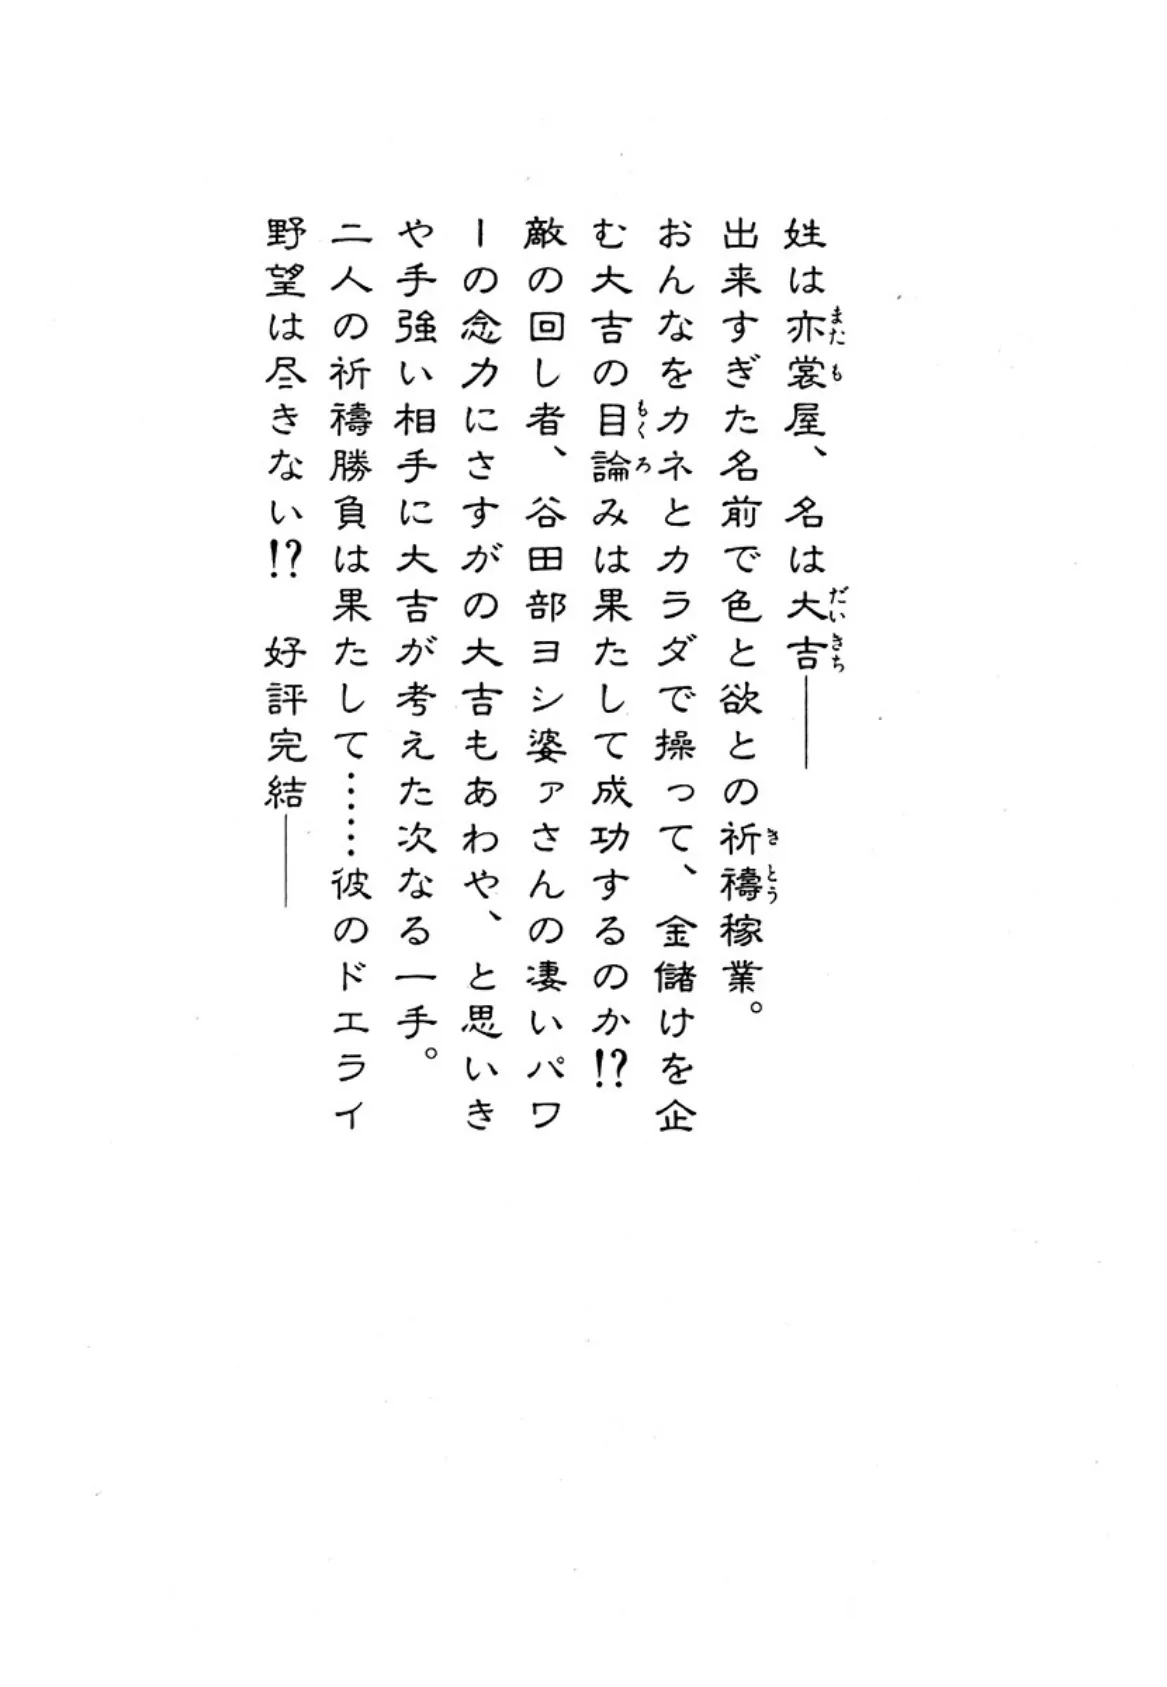 姓は亦裳屋、名は大吉――
出来すぎた名前で色と欲との祈禱稼業。
おんなをカネとカラダで操って、金儲けを企
む大吉の目論みは果たして成功するのか!?
敵の回し者、谷田部ヨシ婆ァさんの凄いパワ
ーの念力にさすがの大吉もあわや、と思いき
や手強い相手に大吉が考えた次なる一手。
二人の祈禱勝負は果たして……彼のドエライ
野望は尽きない!?　好評完結――